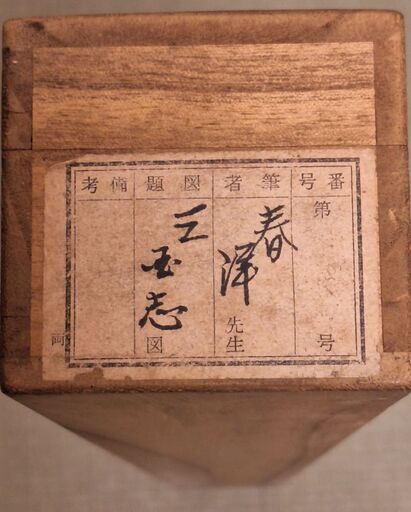 番号 筆者 図題 備考
第 号
春洋先生
三国志図